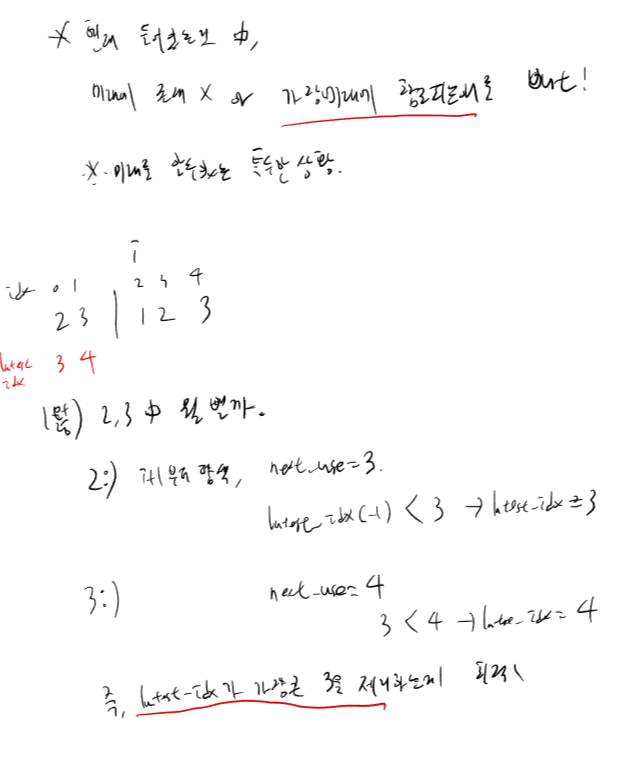 * 현재 들어온는것 中,
미래에 존재 X or 가장 미래에 필요되는지를 out!
* 미래를 알수있는 특수한 상황.
i
idx 0 1 2 3 4
2 3 | 1 2 3
latest idx 3 4
) 2,3 中 뭘 뺄까.
2:) i+1부터 탐색, next_use=3.
latest_idx(-1) < 3 → latest_idx = 3
3:) next_use= 4
3 < 4 → latest_idx = 4
즉, latest-idx가 가장큰 3을 제거하는게 최적